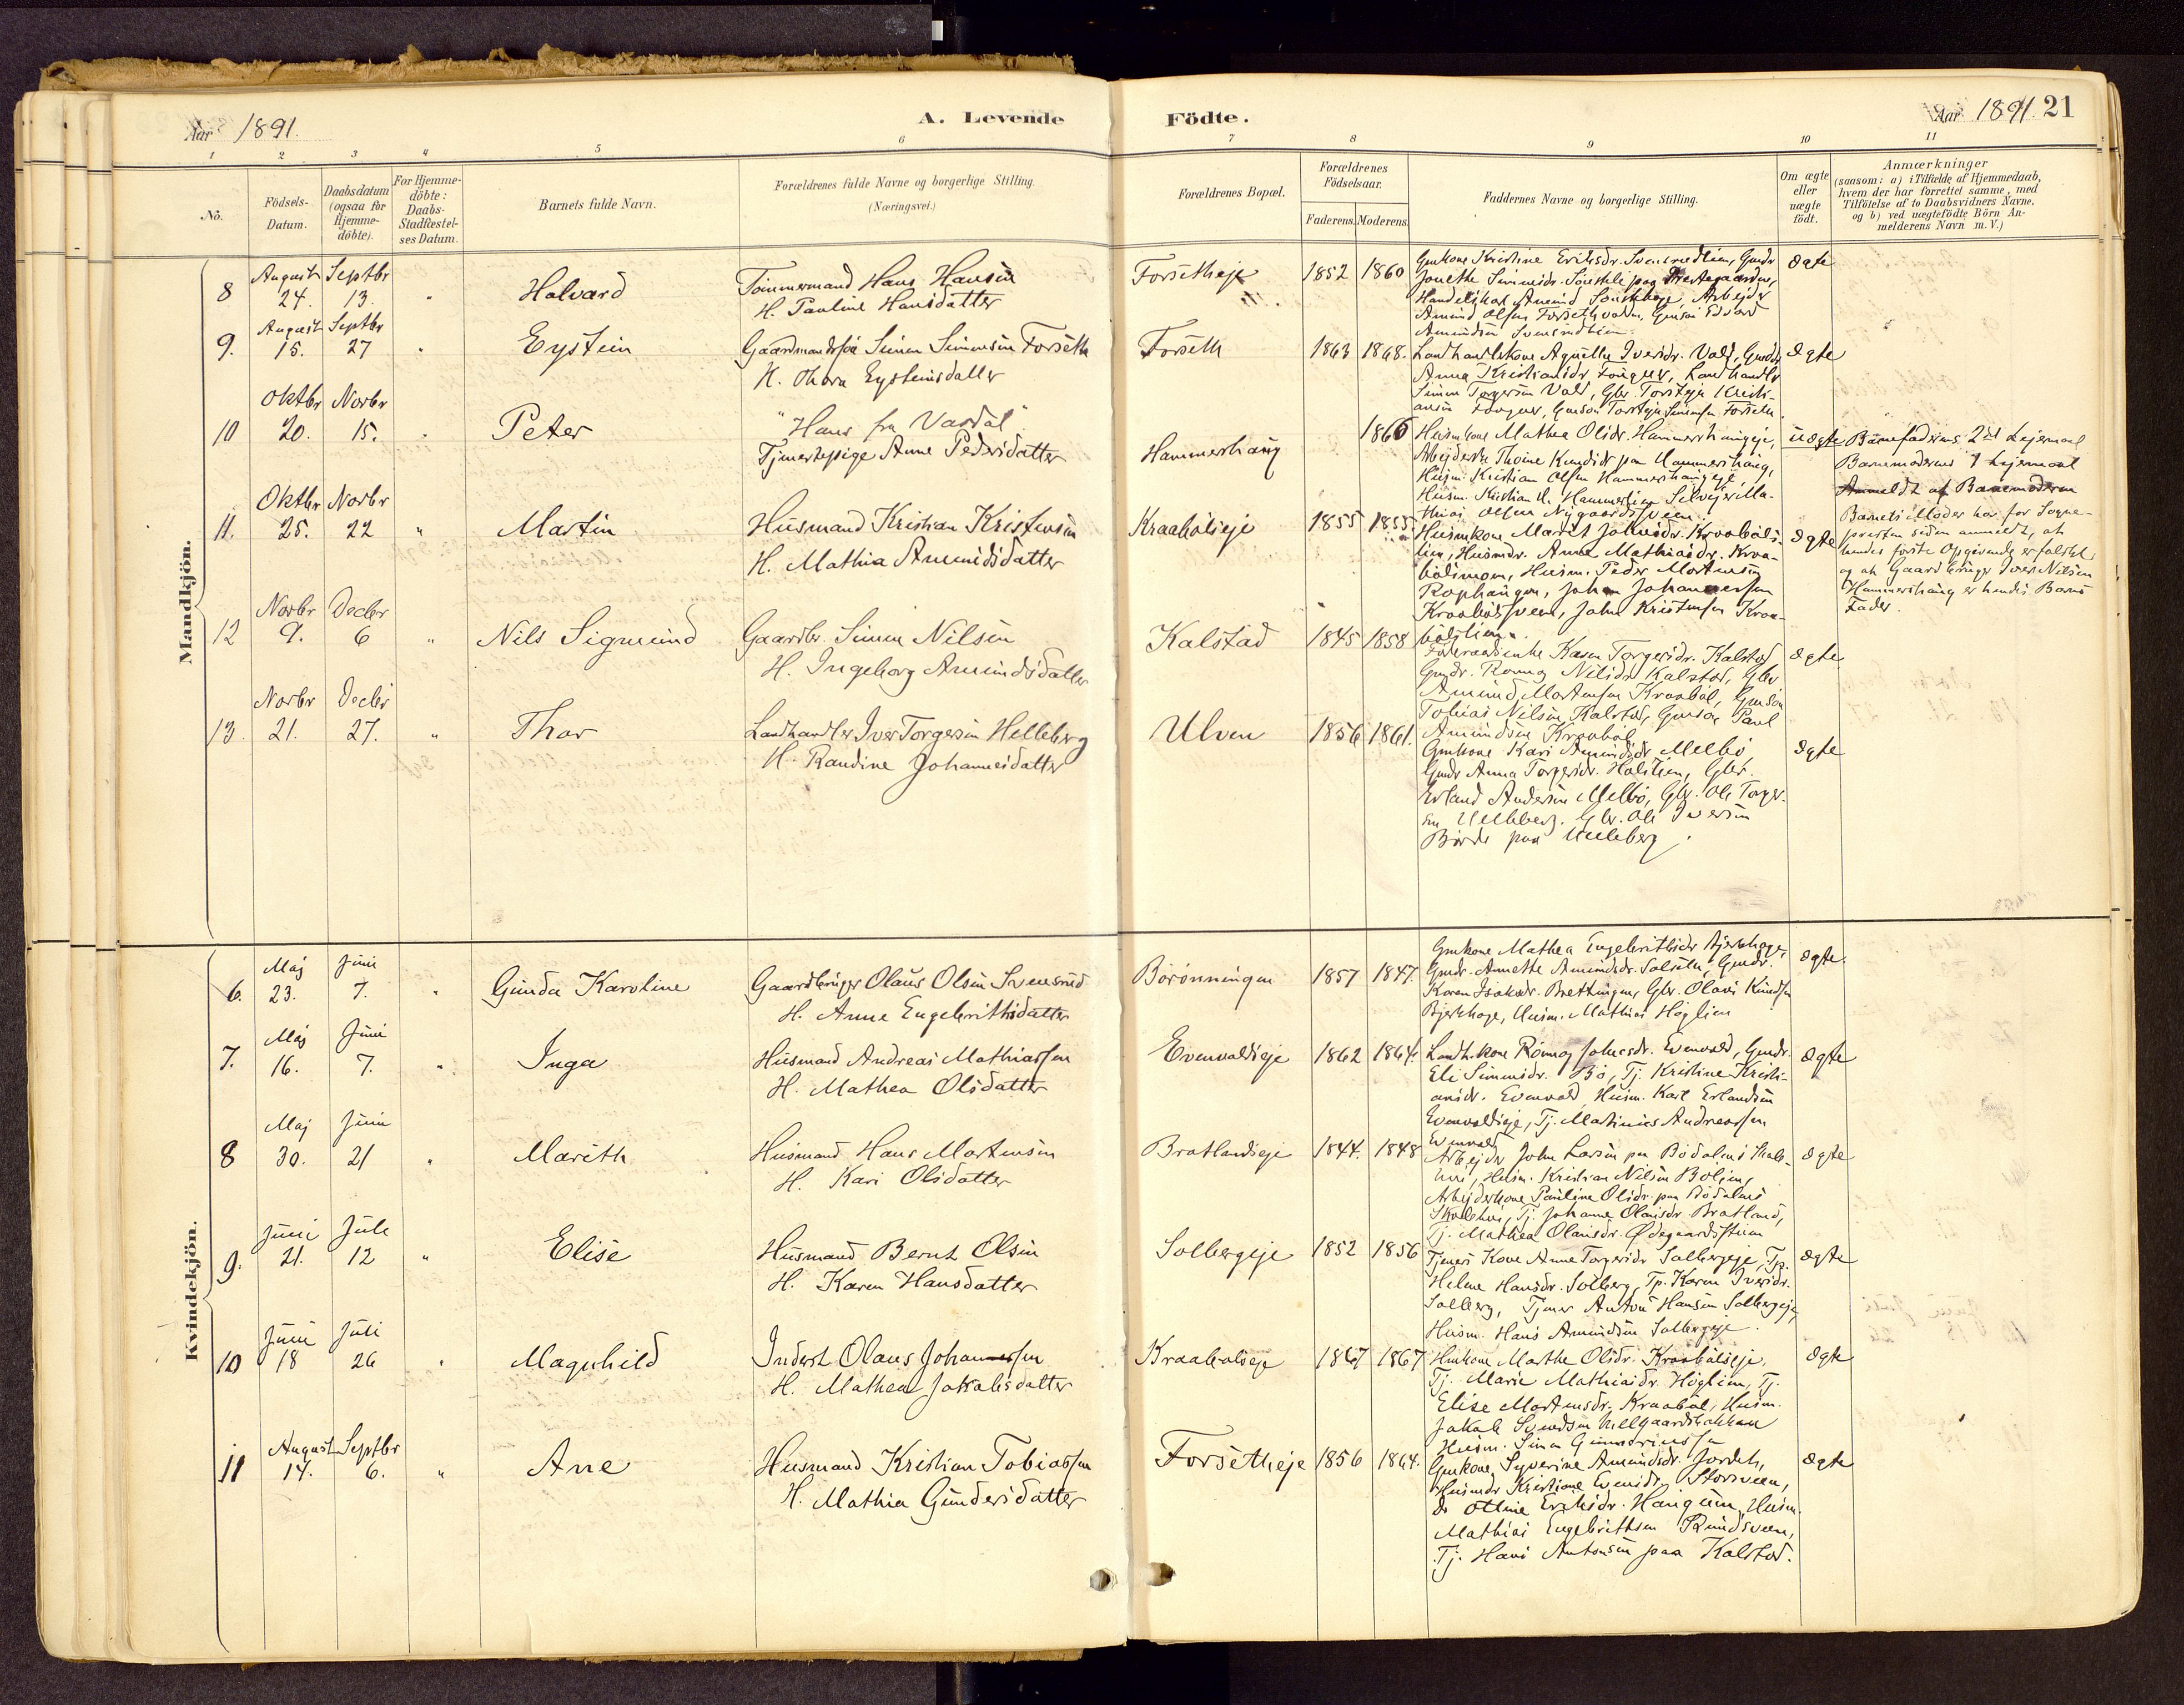 Aar 1891.
A. Levende
Födte.
Aar 1891. 21
1 2 3 4 5 6 7 8 9 10 11
No.
Födsels-Datum.
Daabsdatum (ogsaa for Hjemme-döbte).
For Hjemme-döbte: Daabs-Stadfæstel-ses Datum.
Barnets fulde Navn.
Forældrenes fulde Navne og borgerlige Stilling.
(Næringsvei.)
Forældrenes Bopæl.
Forældrenes Födselsaar.
Faderens. Moderens.
Faddernes Navne og borgerlige Stilling.
Om ægte eller uægte födt.
Anmærkninger
(saasom: a) i Tilfælde af Hjemmedaab,
hvem der har forrettet samme, med
Tilföielse af to Daabsvidners Navne,
og b) ved uægtefödte Börn An-
melderens Navn m.V.)
Mandkjön.
8 August 24. Septbr 13. " Halvard
Tømmermand Hans Hansen
H. Pauline Hansdatter
Forsetheje 1852 1860
Gmkone Kristine Eriksdr. Svensrudlien, Gmdr
Handelskar Amund
Amund Olsen Forsethvolden, Gmsøn Edvard
Amundsen Svensrudlien.
ægte
9. August 15. Septbr 27 " Eystein
Gaardmandssøn Simen Simensen Forseth
H. Thora Eysteinsdatter
Forseth 1863 1868.
Landhandlerkone Agnethe Iversdr. Vold, Gmdr
Anna Kristiansdr Fougner, Landhandler
Simen Torgersen Vold, Gbr. Torstein Kristi-
ansen Fougner, Gmsøn Torstein Simensen Forseth.
ægte
10 Oktbr 20. Novbr 15. " Peter
"Hans fra Vardal"
Tjenestepige Anne Pedersdatter
Hammershaug 1866
Husmkone Mathea Olsdr. Hammershaugeje,
Arbejderske Thorine Knudsdr paa Hammershaug,
Husm. Kristian Olsen Hammershaugeje,
Husm. Kristian H. Hammerlien Selvejer Ma-
thias Olsen Nygaardssveen.
uægte
Barnefaderens 2det Lejermaal
Barnemoderens 1 Lejermaal
Anmeldt af Barnemoderen
Barnets Moder har for Sogne-
presten siden anmeldt, at
hendes første Opgivende er falskt
og at Gaardbruger Iver Nilsen
Hammershaug er hendes Barns
Fader.
11. Oktbr 25. Novbr 22 " Martin
Husmand Kristian Kristensen
H. Mathia Amundsdatter
Kraabølseje 1855 1855
Husmkone Marit Johnsdr. Kraabøls-
lien, Husmdr. Anne Mathiasdr. Kraa-
bølsmoen, Husm. Peder Mortensen
Rophaugen, Johan Johannessen
Kraabølssveen, John Kristensen Kraa-
bølslien.
ægte
12 Novbr 9. Decbr 6 " Nils Sigmund
Gaardbr. Simen Nilsen
H. Ingeborg Amundsdatter
Kalstad 1845 1858
Føderaadsenke Karen Torgersdr. Kalstad
Gmdr. Ronnog Nilsdr Kalstad, Gbr
Amund Mortensen Kraabøl, Gmsøn
Tobias Nilsen Kalstad, Gmsøn Paul
Amundsen Kraabøl.
ægte
13. Novbr 21. Decbr 27. " Thor
Landhandler Iver Torgersen Helleberg
H. Randine Johannesdatter
Ulven 1856 1861.
Gmkone Kari Amundsdr Melbø,
Gmdr Anna Torgersdr. Holslien, Gbr.
Erland Andersen Melbø, Gbr. Ole Torger-
sen Helleberg. Gbr. Ole Iversen
Børde paa Helleberg.
ægte
Kvindekjön.
6. Maj 23. Juni 7. " Gunda Karoline
Gaardbruger Olaus Olsen Svensrud
H. Anne Engebrithsdatter
Börönningen 1857 1847.
Gmkone Mathea Engebrithsdr Bjerkhage,
Gmdr. Annethe Amundsdr. , Gmdr.
Karen Isaksdr. Brettingen, Gbr. Olaus Knudsen
Bjerkhage, Husm. Mathias Høglien
ægte.
7. Maj 16. Juni 7. " Inga
Husmand Andreas Mathiassen
H. Mathea Olsdatter
Evenvoldeje 1862 1864.
Landh.kone Rønnog Johnsdr. Evenvold, Gmdr.
Eli Simensdr. Bø, Tj. Kristine Kristi-
ansdr. Evenvold, Husm. Karl Erlandsen
Evenvoldseje, Tj. Martinius Andreassen
Evenvold
ægte
8 Maj 30. Juni 21 " Marith
Husmand Hans Mortensen
H. Kari Olsdatter
Bratlandseje 1844. 1848
Arbejder John Larsen paa Bödalens Skole-
hus, Husm. Kristian Nilsen Bölien,
Arbejderkone Pauline Olsdr. paa Bödalens
Skolehus, Tj. Johanne Olausdr. Bratland,
Tj. Mathea Olausdr. Ødegaardsstuen
ægte
9. Juni 21. Juli 12 " Elise
Husmand Bernt Olsen
H. Karen Hansdatter
Solbergeje 1852 1856
Tjeners Kone Anne Torgersdr Solbergeje, Tp.
Helene Hansdr. Solberg, Tp. Karen Iversdr.
Solberg, Tjener Anton Hansen Solbergeje,
Husm. Hans Amundsen Solbergeje.
ægte
10 Juni 18 Juli 26 " Magnhild
Inderst Olaus Johannessen
H. Mathea Jakobsdatter
Kraabølseje 1867 1867
Huskone Marthe Olsdr. Kraabølseje,
Tj. Marie Mathiasdr. Høglien, Tj.
Elise Mortensdr. Kraabøl, Husm.
Jakob Svendsen Melgaardsbakken
Husm. Simen
ægte
11 August 14. Septbr 6. " Ane
Husmand Kristian Tobiassen
H. Mathia Gundersdatter
Forsetheje 1856 1864.
Gmkone Syverine Amundsdr. Jordet,
Husmdr Kristiane Evensdr. Storsveen,
Do Otline Eriksdr. Haugum, Husm.
Mathias Engebrithsen Rundsveen,
Tj. Hans Antonsen paa Kalstad.
ægte